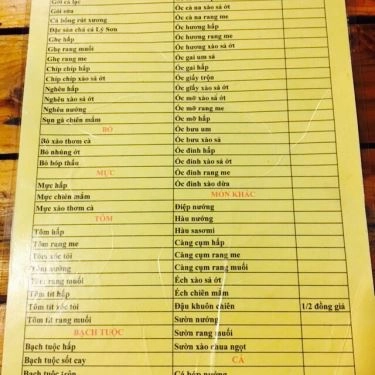 Gỏi cá lạc
Gỏi sứa
Cá bống rút xương
Đặc sản chả cá Lý Sơn
Ghẹ hấp
Ghẹ rang muối
Ghẹ rang me
Chíp chíp hấp
Chíp chíp xào sả ớt
Nghêu hấp
Nghêu xào sả ớt
Nghêu nướng
Sụn gà chiên mắm
BÒ
Bò xào thơm cà
Bò nhúng ớt
Bò bóp thấu
MỰC
Mực hấp
Mực chiên mắm
Mực xào thơm cà
TÔM
Tôm hấp
Tôm rang me
Tôm xốc tỏi
Tôm nướng
Tôm rang muối
Tôm tít hấp
Tôm tít xốc tỏi
Tôm tít rang muối
BẠCH TUỘC
Bạch tuộc hấp
Bạch tuộc sốt cay
Bạch tuộc
Ốc cà na xào sả ớt
Ốc cà na rang me
Ốc hương hấp
Ốc hương rang me
Ốc hương xào sả ớt
Ốc gai um sả
Ốc gai hấp
Ốc giấy trộn
Ốc giấy xào sả ớt
Ốc mỡ xào sả ớt
Ốc mỡ rang me
Ốc mỡ hấp
Ốc bưu um
Ốc bưu xào sả
Ốc đỉnh hấp
Ốc đỉnh xào sả ớt
Ốc đỉnh rang me
Ốc đỉnh xào dừa
MÓN KHÁC
Điệp nướng
Hàu nướng
Hàu sasomi
Càng cụm hấp
Càng cụm rang me
Càng cụm rang muối
Ếch xào sả ớt
Ếch chiên mắm
Đậu khuôn chiên 1/2 đồng giá
Sườn nướng
Sườn rang muối
Sườn xào chua ngọt
CÁ
Cá bóp nướng